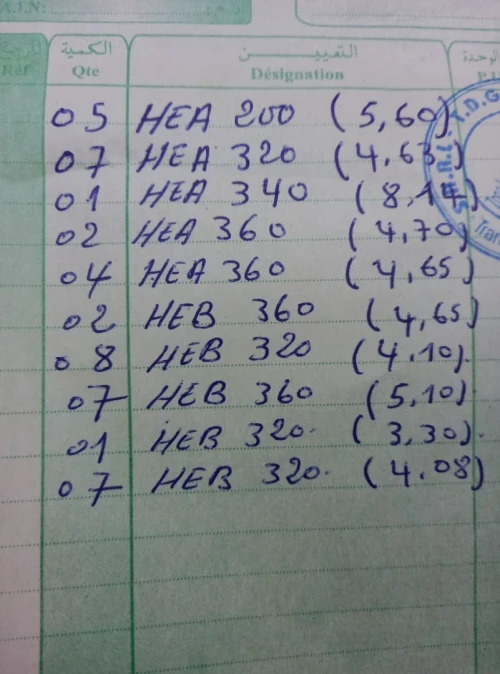 A.I.N:
الكمية التعييـــــــن الوحدة
Réf Qte Désignation P.U
05 HEA 200 (5,60)
07 HEA 320 (4,63)
01 HEA 340 (8,14)
02 HEA 360 (4,70)
04 HEA 360 (4,65)
02 HEB 360 (4,65)
08 HEB 320 (4.10).
07 HEB 360 (5,10)
01 HEB 320. (3,30).
07 HEB 320. (4.08)
T.D.G
S.A.R.L
Tran